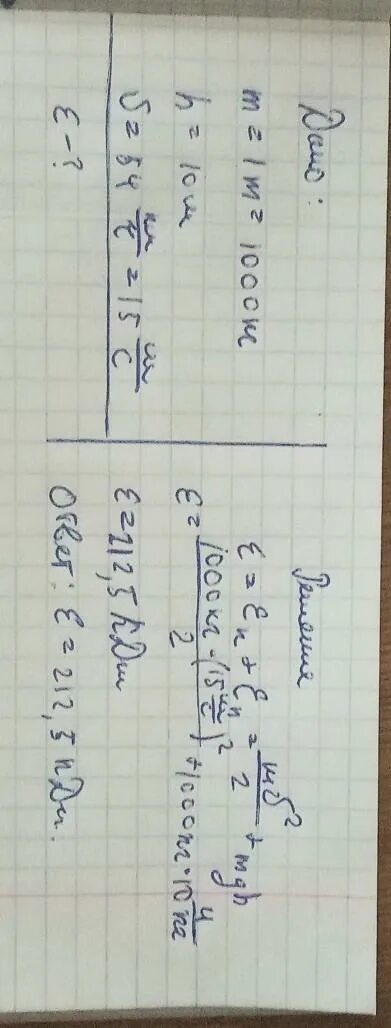 Дано:
m = 1 т = 1000 кг
h = 10 м
υ = 54 км/ч = 15 м/с
E - ?
Решение
E = Eк + Eп = mυ²/2 + mgh
E = 1000 кг · (15 м/с)²/2 + 1000 кг · 10 Н/кг
E = 212,5 кДж
Ответ: E = 212,5 кДж.